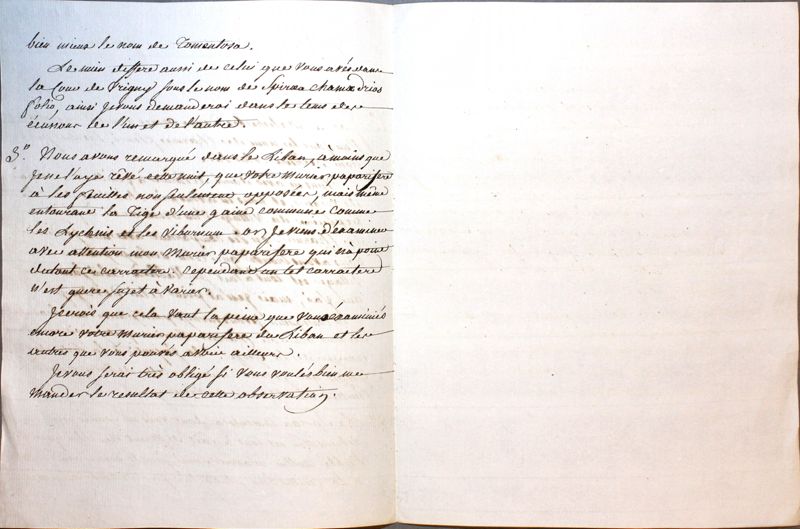 bien mieux le nom de Tomentosa.
Le mien differe aussi de celui que vous avés dans
la Cour de Vrigny sous le nom de Spiraa chamædrios
folio, ainsi je vous demanderai dans le tems des
écussons de l'un et de l'autre.
3.° Nous avons remarqué dans le Liban, à moins que
je ne l'aye rêvé cette nuit, que votre Murier paparifere
a les feuilles non seulement opposées, mais même
entourant la Tige d'une gaine commune comme
les Lychnis et les Viburnum or, je viens d'examiner
avec attention mon Murier paparifere qui n'a point
du tout ce carractere; Cependant un tel carractere
n'est guere sujet à varier.
Je crois que cela vaut la peine que vous éxaminiés
encore votre Murier paparifere du Liban et les
autres que vous pouvés avoir ailleurs.
Je vous serai très obligé si vous voulés bien me
mander le resultat de cette observation.